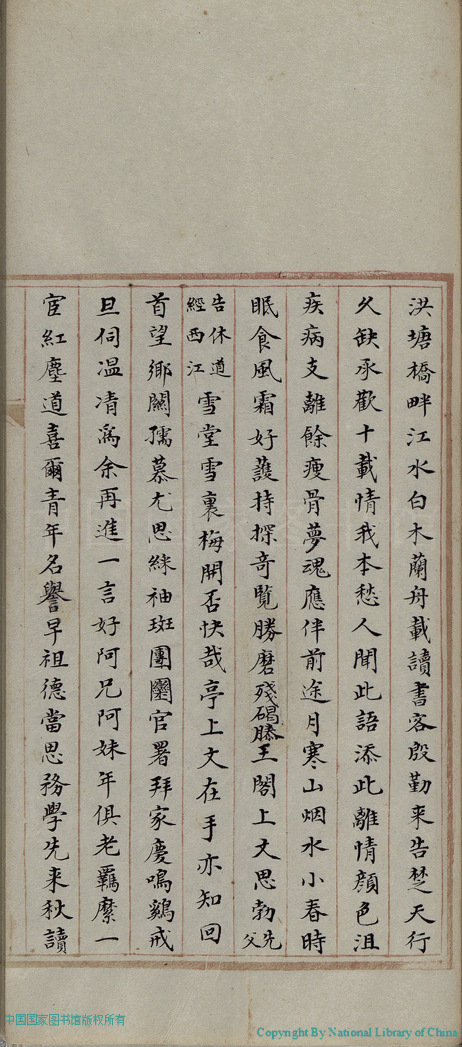 洪塘橋畔江水白木蘭舟載讀書客殷勤來告楚天行
久缺承歡十載情我本愁人聞此語添此離情顏色沮
疾病支離餘瘦骨夢魂應伴前途月寒山烟水小春時
眠食風霜好護持探奇覽勝磨殘碣滕王閣上文思勃先父
告休道經西江雪堂雪裏梅開否快哉亭上文在手亦知回
首望鄉關孺慕尤思綵袖斑團圞官署拜家慶鳴鷄戒
旦伺溫凊為余再進一言好阿兄阿妹年俱老羈縻一
宦紅塵道喜爾青年名譽早祖德當思務學先來秋讀
中国国家图书馆版权所有
Copyright By National Library of China